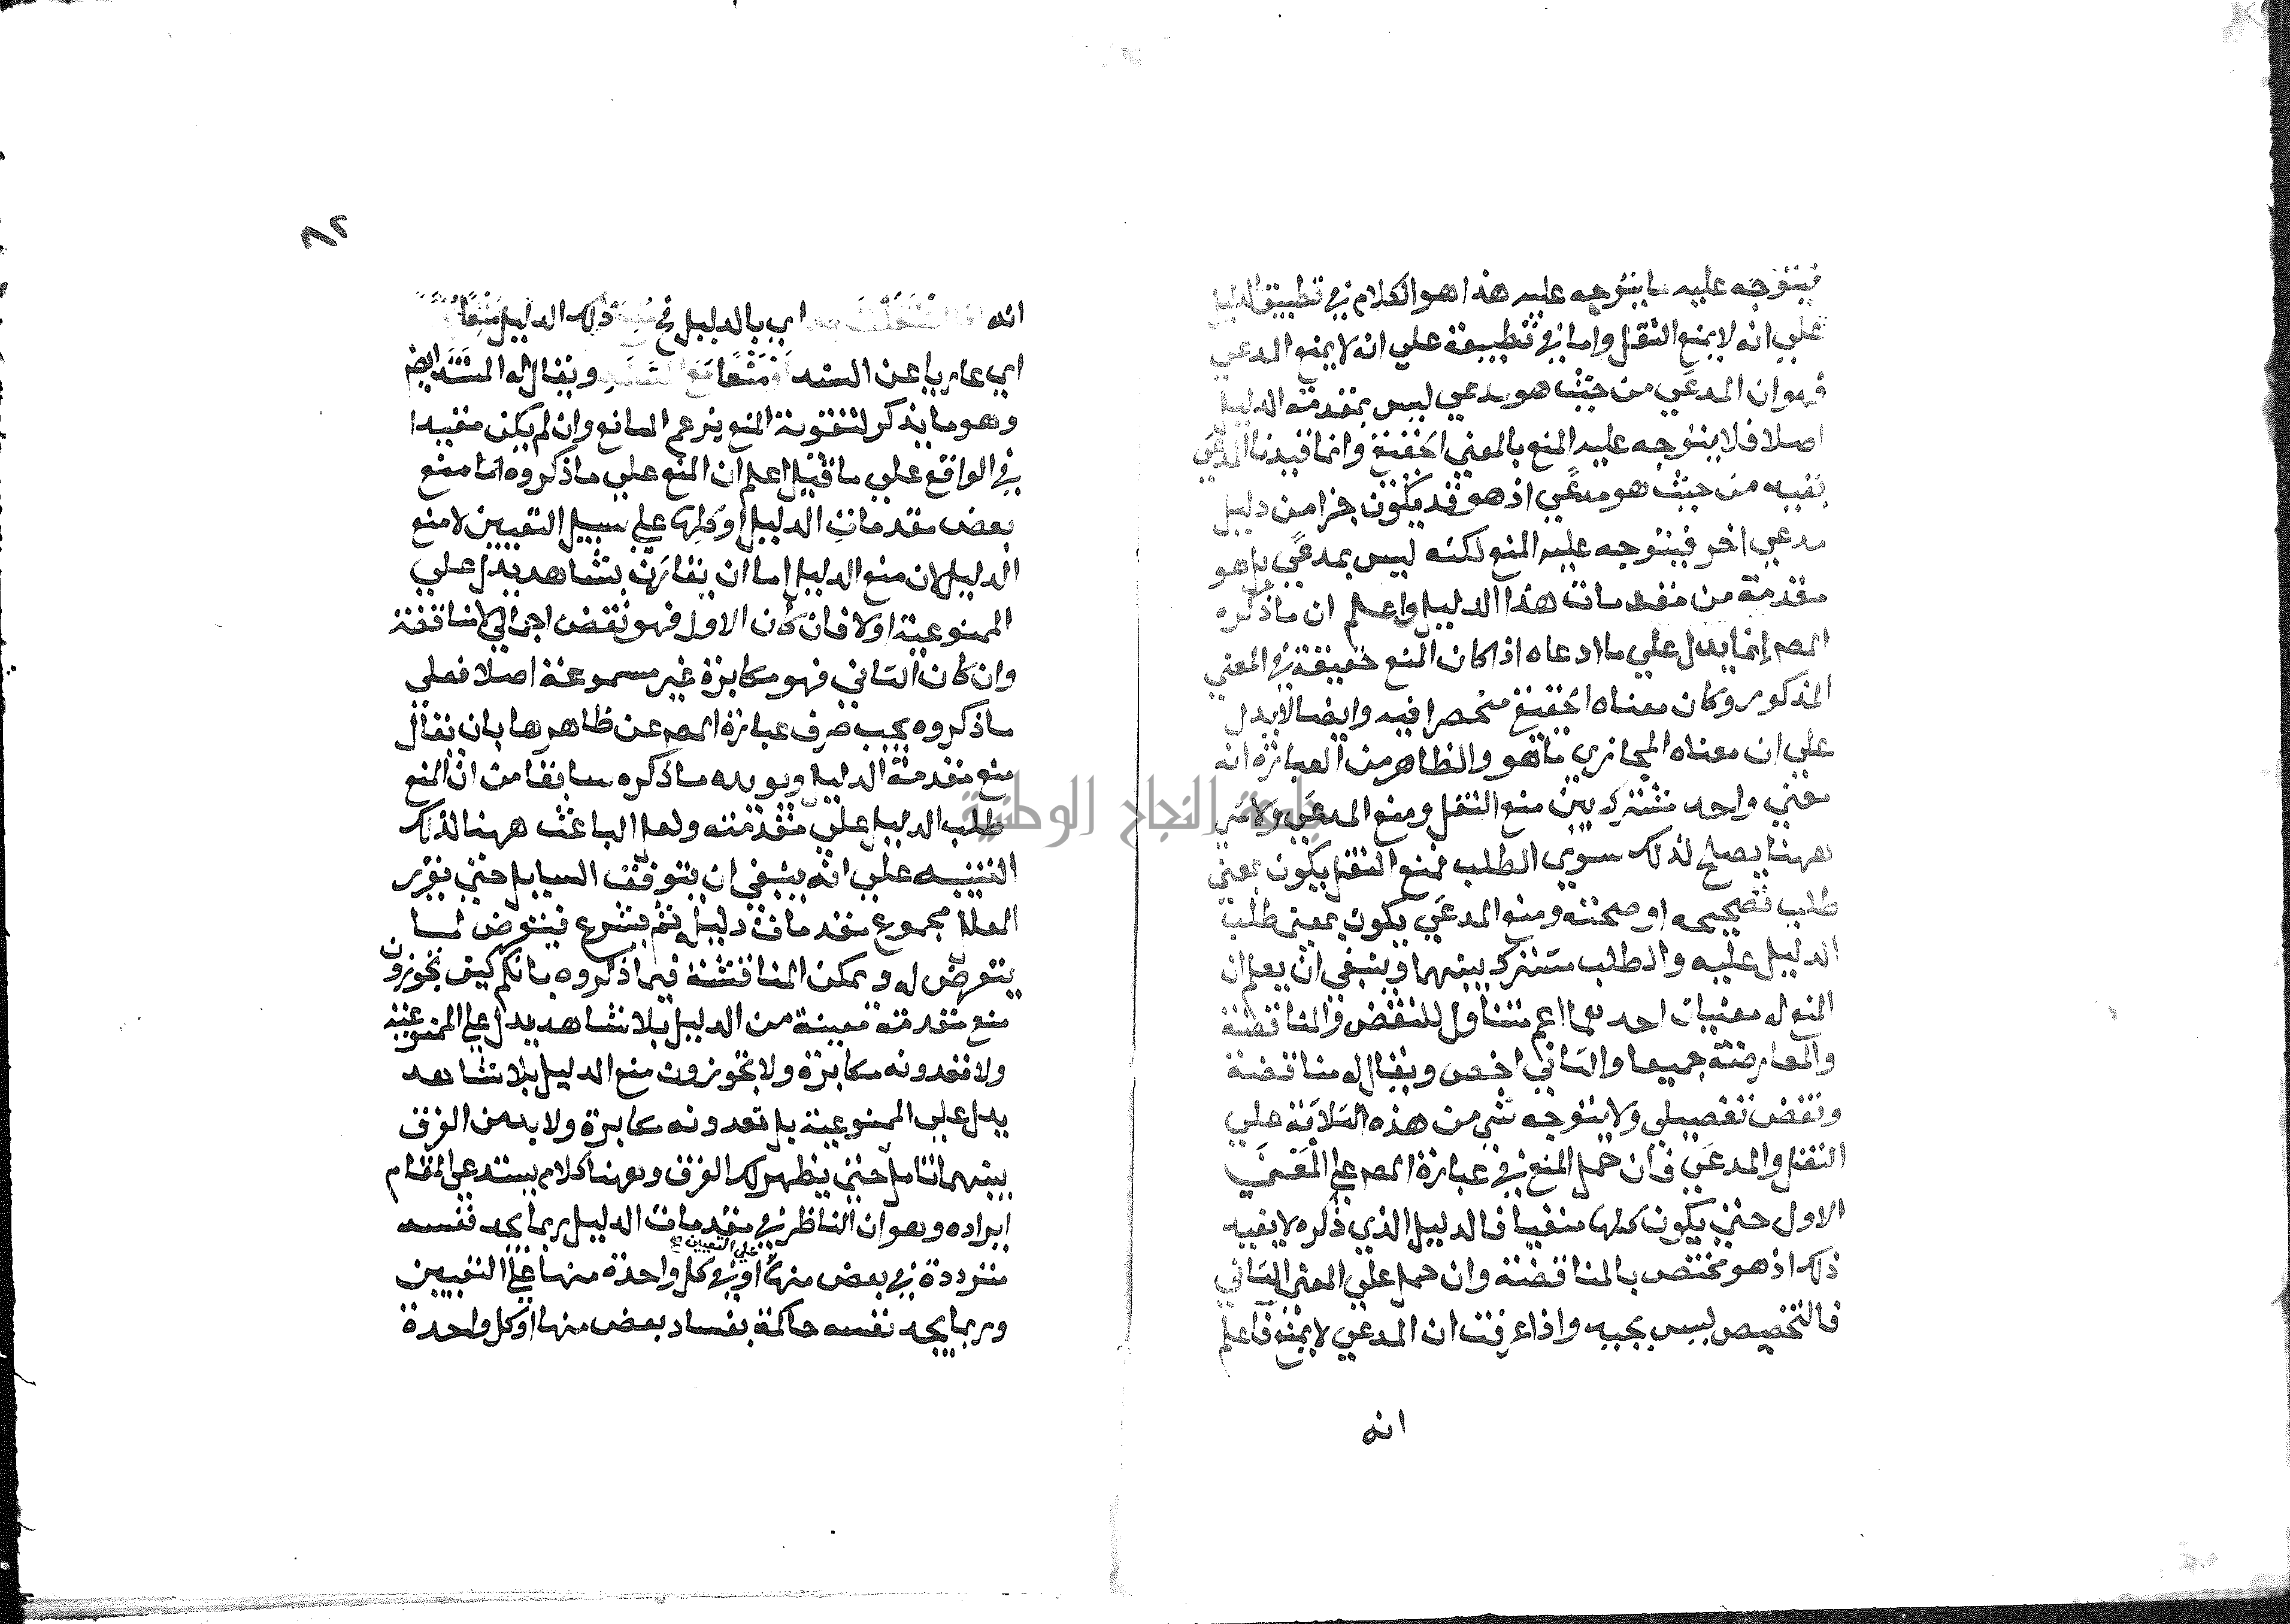 فيتوجه عليه ما يتوجه عليه هذا هو الكلام في تطبيق الدليل
علي انه لا يمنع النقل واما في تطبيقه علي انه لا يمنع المدعي
فهو ان المدعي من حيث هو مدعي ليس بمقدمة الدليل
اصلا فلا يتوجه عليه المنع بالمعني الحقيقة وانما قيدنا المدعي
بقيه من حيث هو مدعي اذ هو قد يكون جزا من دليل
مدعي اخر فيتوجه عليه المنع لكنه ليس بمدعي بل هو
مقدمة من مقدمات هذا الدليل واعلم ان ما ذكره
المصـ إنما يدل علي ما ادعاه اذا كان المنع حقيقة في المعني
المذكور وكان معناه الحقيقي منحصرا فيه وايضا لا يدل
علي ان معناه المجازي ما هو والظاهر من العبارة انه
معني واحد مشترك بين منع النقل ومنع المدعي ولا شي
ههنا يصلح لذلك سوي الطلب فمنع النقل يكون بمعني
طلب تصحيحه او صحته ومنع المدعي يكون بمعني طلب
الدليل عليه والطلب مشترك بينهما وينبغي ان يعلم ان
المنع له معنيان احدهما اعم متناول للنقض والمناقضة
والمعارضة جميعا والثاني اخص ويقال له مناقضة
ونقض تفصيلي ولا يتوجه شي من هذه الثلاثة علي
النقل والمدعي فان حمل المنع في عبارة المصـ علي المعني
الاول حتي يكون كلها منفيا فالدليل الذي ذكره لا يفيه
ذلك اذ هو مختص بالمناقضة وان حمل علي المعني الثاني
فالتخصيص ليس بجيه واذا عرفت ان المدعي لا يمنع فاعلم
انه
٨٢
انه اي بالدليل في ذلك الدليل منعا
اي عاريا عن السند او منعا مع السند ويقال له المستند ايضا
وهو ما يذكر لتقوية المنع يزعم المانع وان لم يكن مفيدا
في الواقع علي ما قيل اعلم ان المنع علي ما ذكروه انما منع
بعض مقدمات الدليل او كلها علي سبيل التعيين لا منع
الدليل لان منع الدليل اما ان يقارن بشاهد يدل علي
الممنوعية اولا فان كان الاول فهو نقض اجمالي لا مناقضة
وان كان الثاني فهو مكابرة غير مسموعة اصلا فعلي
ما ذكروه يجب صرف عبارة المصـ عن ظاهرها بان نقال
منع مقدمة الدليل ويويده ما ذكره سابقا من ان المنع
طلب الدليل علي مقدمته ولعل الباعث ههنا لذلك
التنبيه علي انه ينبغي ان يتوقف السايل حتي يقرر
المعلل مجموع مقدمات دليله ثم يشرع فيتعرض لما
يتعرض له ويمكن المناقشة فيما ذكروه بانكم كيف تجوزون
منع مقدمة معينة من الدليل بلا شاهد يدل علي الممنوعية
ولا تعدونه مكابرة ولا تجوزون منع الدليل بلا شاهد
يدل علي الممنوعية بل تعدونه مكابرة ولا بد من الفرق
بينهما تامل حتي يظهر لك الفرق وههنا كلام يستدعي المقام
ايراده وهو ان الناظر في مقدمات الدليل ربما يجد نفسه
علي التعيين صح
مترددة في بعض منها او في كل واحدة منها علي التعيين
وربما يجد نفسه حاكمة بفساد بعض منها او كل واحدة
جامعة النجاح الوطنية